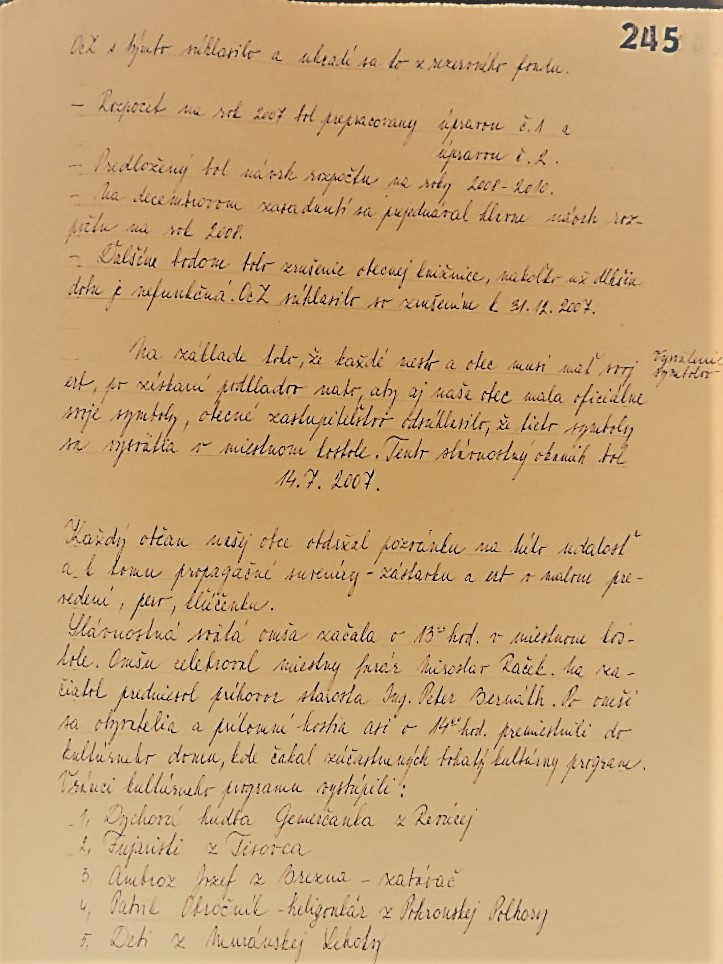 245
OcZ s týmto súhlasilo a uhradí sa to z rezervného fondu.
- Rozpočet na rok 2007 bol prepracovaný úpravou č.1 a
úpravou č.2.
- Predložený bol návrh rozpočtu na roky 2008-2010.
- Na decembrovom zasadnutí sa prejednával hlavne návrh roz-
počtu na rok 2008.
- Ďalšíme bodom bolo zrušenie obecnej knižnice, nakoľko už dlhšiu
dobu je nefunkčná. OcZ súhlasilo so zrušením k 31.12.2007.
Na základe toho, že každé mesto a obec musí mať svoj
erb, po získaní podkladov nato, aby aj naša obec mala oficiálne
svoje symboly, obecné zastupiteľstvo odsúhlasilo, že tieto symboly
sa vysvätia v miestnom kostole. Tento slávnostný okamih bol
14.7.2007.
Vysvätenie
symbolov
Každý občan našej obce obdržal pozvánku na túto udalosť
a k tomu propagačné suveníry - zástavku a erb v malom pre-
vedení, pero, kľúčenku.
Slávnostná svätá omša začala o 13 hod. v miestnom kos-
tole. Omšu celebroval miestny farár Miroslav Raček. Na za-
čiatok predniesol príhovor starosta Ing. Peter Bernáth. Po omši
sa obyvatelia a prítomní hostia asi o 14 hod. premiestnili do
kultúrneho domu, kde čakal zúčastnených bohatý kultúrny program.
V rámci kultúrneho programu vystúpili:
1, Dychová hudba Gemerčanka z Revúcej
2, Fujaristi z Tisovca
3, Ambroz Jozef z Brezna - zabávač
4, Patrik Obročník - heligonkár z Pohronskej Polhory
5, Deti z Muránskej Lehoty